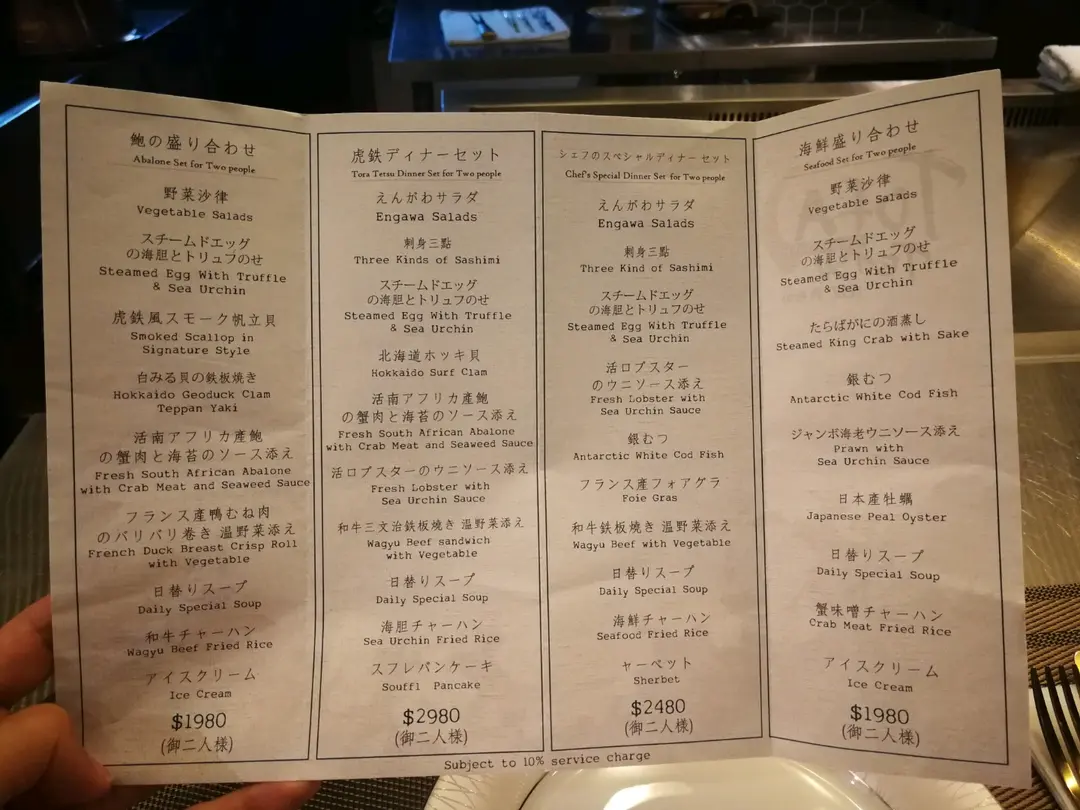 鮑の盛り合わせ
Abalone Set for Two people
野菜沙律
Vegetable Salads
スチームドエッグ
の海胆とトリュフのせ
Steamed Egg With Truffle
& Sea Urchin
虎鉄風スモーク帆立貝
Smoked Scallop in
Signature Style
白みる貝の鉄板焼き
Hokkaido Geoduck Clam
Teppan Yaki
活南アフリカ産鮑
の蟹肉と海苔のソース添え
Fresh South African Abalone
with Crab Meat and Seaweed Sauce
フランス産鴨むね肉
のバリバリ巻き 温野菜添え
French Duck Breast Crisp Roll
with Vegetable
日替りスープ
Daily Special Soup
和牛チャーハン
Wagyu Beef Fried Rice
アイスクリーム
Ice Cream
$1980
(御二人様)
虎鉄ディナーセット
Tora Tetsu Dinner Set for Two people
えんがわサラダ
Engawa Salads
刺身三點
Three Kinds of Sashimi
スチームドエッグ
の海胆とトリュフのせ
Steamed Egg With Truffle
& Sea Urchin
北海道ホッキ貝
Hokkaido Surf Clam
活南アフリカ産鮑
の蟹肉と海苔のソース添え
Fresh South African Abalone
with Crab Meat and Seaweed Sauce
活ロブスターのウニソース添え
Fresh Lobster with
Sea Urchin Sauce
和牛三文治鉄板焼き 温野菜添え
Wagyu Beef sandwich
with Vegetable
日替りスープ
Daily Special Soup
海胆チャーハン
Sea Urchin Fried Rice
スフレパンケーキ
Souffl Pancake
$2980
(御二人様)
シェフのスペシャルディナーセット
Chef's Special Dinner Set for Two people
えんがわサラダ
Engawa Salads
刺身三點
Three Kind of Sashimi
スチームドエッグ
の海胆とトリュフのせ
Steamed Egg With Truffle
& Sea Urchin
活ロブスター
のウニソース添え
Fresh Lobster with
Sea Urchin Sauce
銀むつ
Antarctic White Cod Fish
フランス産フォアグラ
Foie Gras
和牛鉄板焼き 温野菜添え
Wagyu Beef with Vegetable
日替りスープ
Daily Special Soup
海鮮チャーハン
Seafood Fried Rice
ャーベット
Sherbet
$2480
(御二人様)
海鮮盛り合わせ
Seafood Set for Two people
野菜沙律
Vegetable Salads
スチームドエッグ
の海胆とトリュフのせ
Steamed Egg With Truffle
& Sea Urchin
たらばがにの酒蒸し
Steamed King Crab with Sake
銀むつ
Antarctic White Cod Fish
ジャンボ海老ウニソース添え
Prawn with
Sea Urchin Sauce
日本産牡蠣
Japanese Peal Oyster
日替りスープ
Daily Special Soup
蟹味噌チャーハン
Crab Meat Fried Rice
アイスクリーム
Ice Cream
$1980
(御二人様)
Subject to 10% service charge